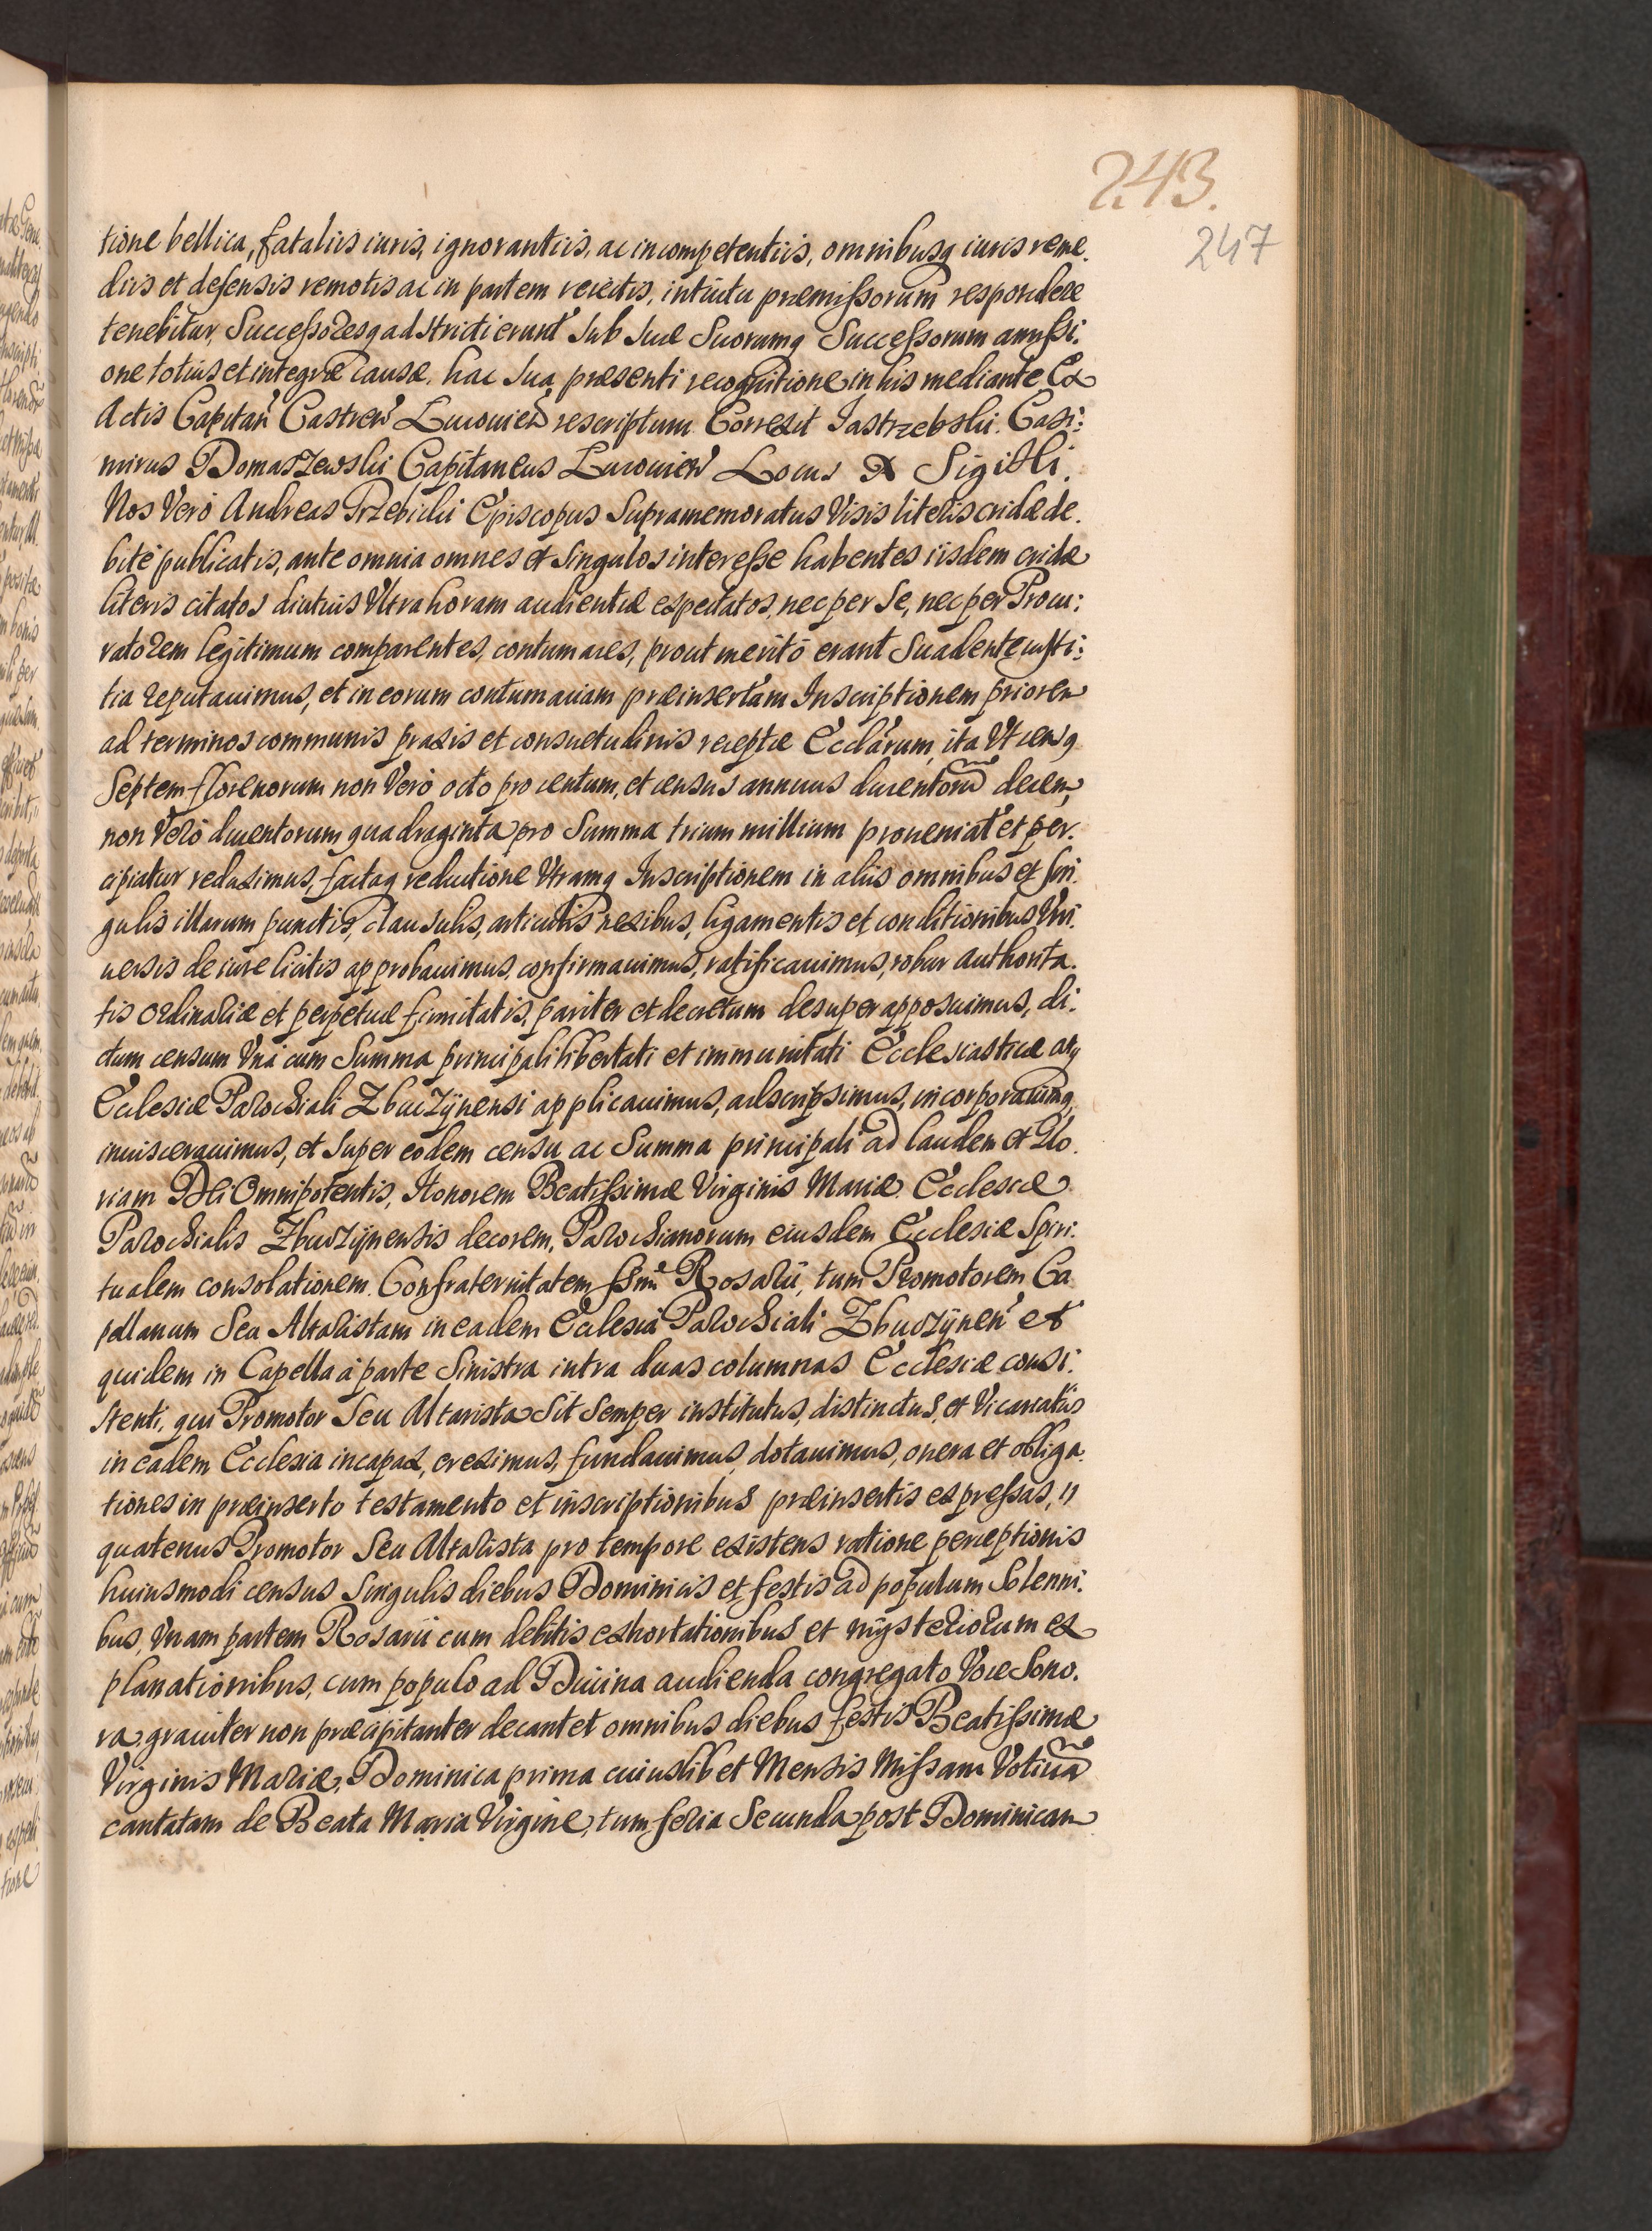 243.
247
tione bellica, fataliis iuris, ignorantiis, ac incompetentiis, omnibusq iuris reme.
diis et defensis remotis ac in partem reiectis, intuitu præmissorum respondere
tenebitur, Successoresq adstricti erunt sub suæ Suorumq Successorum amissi:
one totius et integræ causæ, hac sua præsenti recognitione in his mediante Ex
Actis Capitan̄ Castren̄ Lucovien̄ rescriptum Correxit Jastrzebski. Casi:
mirus Domaszewski Capitaneus Lucovien̄ Locus Sigilli.
Nos Verò Andreas Trzebicki Episcopus Supramemoratus Visis literis cridæ de.
bitè publicatis, ante omnia omnes et singulos interesse habentes iisdem cridæ
literis citatos diutius Ultra horam audientiæ expectatos, nec per se, nec per Procu:
ratorem legitimum comparentes, contumaces, prout meritò erant Suadente iusti:
tia reputauimus, et in eorum contumaciam præinsertam Inscriptionem priorem
ad terminos communis praxis et consuetudinis receptæ Ecclārum, ita Ut censq
Septem florenorum non Verò octo pro centum, et census annuus ducentorū decem,
non Verò ducentorum quadraginta pro Summa trium millium proueniat et per.
cipiatur reduximus, factaq reductione Utramq Inscriptionem in aliis omnibus et sin.
gulis illarum punctis, clausulis, articulis nexibus, ligamentis et conditionibus Uni.
uersis de iure licitis approbauimus, confirmauimus, ratificauimus, robur authorita.
tis ordinariæ et perpetuæ firmitatis, pariter et decretum desuper apposuimus, di:
ctum censum Unà cum Summa principali libertati et immunitati Ecclesiasticæ atq
Ecclesiæ Parochiali Zbuczÿnensi applicauimus, adscripsimus, incorporauimq,
inuiscerauimus, et super eodem censu ac Summa principali ad laudem et Glo.
riam DEi Omnipotentis, Honorem Beatissimæ Virginis Mariæ Ecclesiæ
Parochialis Zbuczÿnensis decorem, Parochianorum eiusdem Ecclesiæ Spiri:
tualem consolationem. Confraternitatem ssm̄i Rosarii, tum Promotorem Ca
pellanum Seu Altaristam in eadem Ecclesia Parochiali Zbuczÿnen̄ et
quidem in Capella à parte Sinistra intra duas columnas Ecclesiæ consi:
stenti, qui Promotor Seu Altarista sit Semper institutus, distinctus, et Vicariatûs
in eadem Ecclesia incapax, ereximus, fundauimus, dotauimus, onera et obliga.
tiones in præinserto testamento et inscriptionibus præinsertis expressas,
quatenus Promotor Seu Altarista pro tempore existens ratione perceptionis
huiusmodi census Singulis diebus Dominicis et festis ad populum Solenni.
bus, Unam partem Rosarii cum debitis exhortationibus et mÿsteriorum ex
planationibus, cum populo ad Diuina audienda congregato Voce Sono.
ra, grauiter non præcipitanter decantet omnibus diebus festis Beatissimæ
Virginis Mariæ, Dominica prima cuiuslibet Mensis Missam Votiuā
cantatam de Beata Maria Virgine, tum feria Secunda post Dominicam